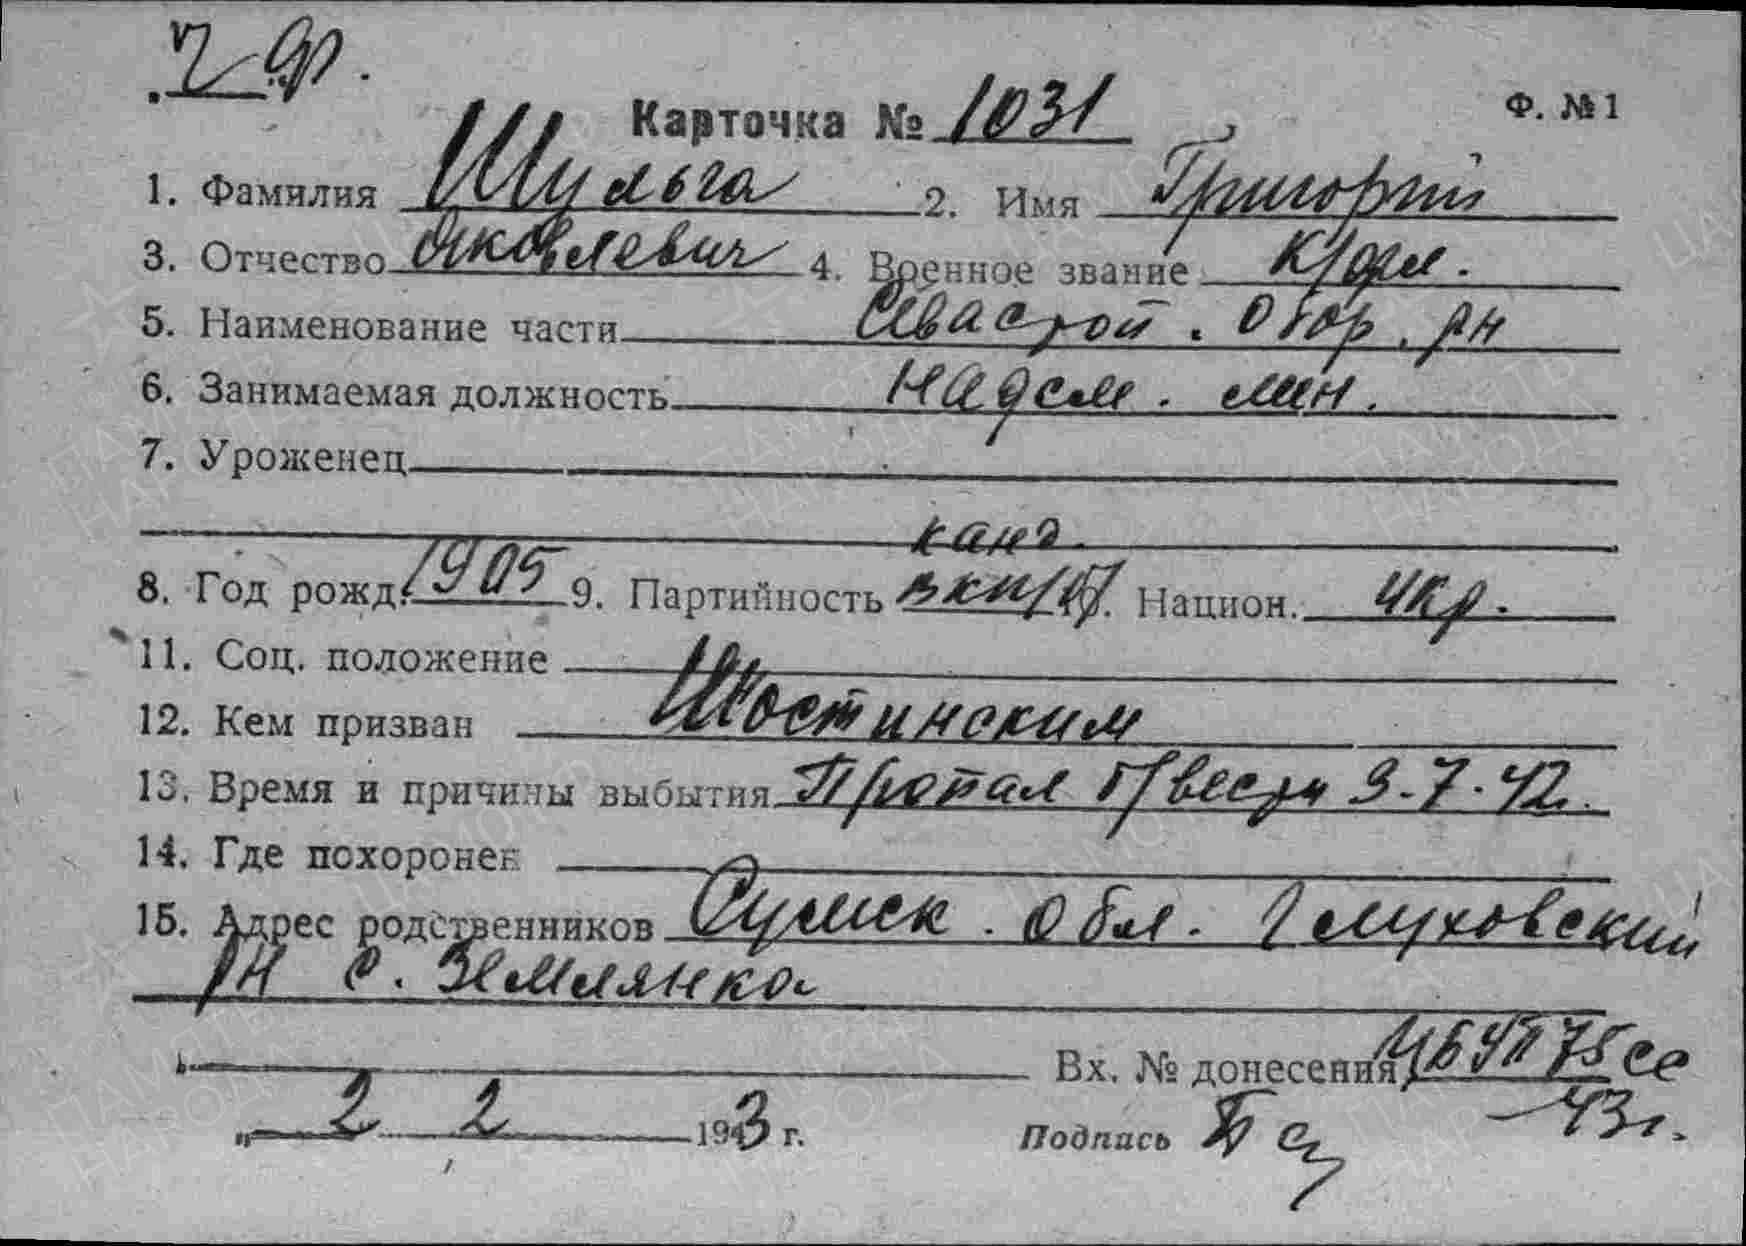 ч ф.
Карточка № 1031
Ф. № 1
1. Фамилия Шульга 2. Имя Григорий
3. Отчество Яковлевич 4. Военное звание к/фл.
5. Наименование части Севастоп. Обор. рн
6. Занимаемая должность надсм. мин.
7. Уроженец
канд.
8. Год рожд. 1905 9. Партийность ВКП/б/. Национ. Укр.
11. Соц. положение
12. Кем призван Шостинским
13. Время и причины выбытия Пропал б/вести 3.7.42.
14. Где похоронен
15. Адрес родственников Сумск. Обл. Глуховский
рн с. Землянка
Вх. № донесения 75 сс
43г.
„ 2 2 1943 г.
Подпись